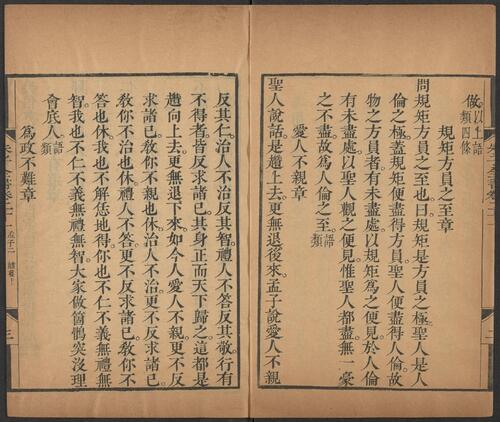 做。以上語類四條
規矩方員之至章
問規矩方員之至也。曰規矩是方員之極。聖人是人
倫之極。蓋規矩便盡得方員。聖人便盡得人倫。故
物之方員者。有未盡處。以規矩為之便見。於人倫
有未盡處。以聖人觀之便見。惟聖人都盡。無一豪
之不盡。故為人倫之至。語類
愛人不親章
聖人說話。是趲上去。更無退後來。孟子說愛人不親
反其仁。治人不治反其智。禮人不答反其敬。行有
不得者。皆反求諸己。其身正而天下歸之。這都是
趲向上去。更無退下來。如今人愛人不親。更不反
求諸己。教你不親也休。治人不治。更不反求諸己。
教你不治也休。禮人不答。更不反求諸己。教你不
答也休。我也不解恁地得。你也不仁不義。無禮無
智。我也不仁不義。無禮無智。大家做箇鶻突沒理
會底人。語類
為政不難章
孟子二
三